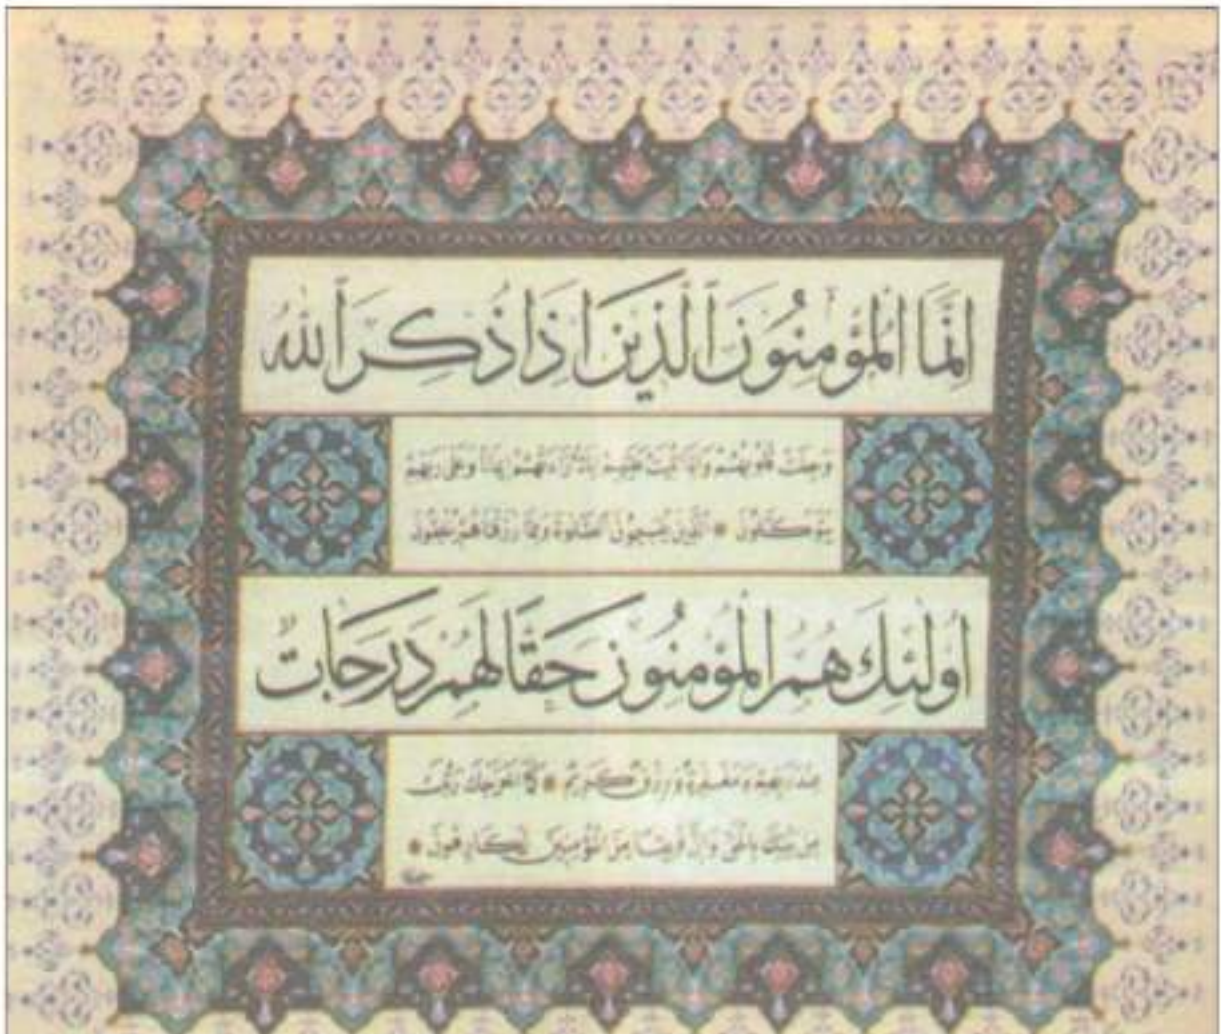 إنَّمَا الْمُؤْمِنُونَ الَّذِينَ إِذَا ذُكِرَ اللهُ
وَجِلَتْ قُلُوبُهُمْ وَإِذَا تُلِيَتْ عَلَيْهِمْ آيَاتُهُ زَادَتْهُمْ إِيمَاناً وَعَلَى رَبِّهِمْ
يَتَوَكَّلُونَ * الَّذِينَ يُقِيمُونَ الصَّلوةَ وَمِمَّا رَزَقْنَاهُمْ يُنْفِقُونَ
اُولئِكَ هُمُ الْمُؤْمِنُونَ حَقًّا لَهُمْ دَرَجَاتٌ
عِنْدَ رَبِّهِمْ وَمَغْفِرَةٌ وَرِزْقٌ كَرِيمٌ * كَمَا أَخْرَجَكَ رَبُّكَ
مِنْ بَيْتِكَ بِالْحَقِّ وَإِنَّ فَرِيقًا مِنَ الْمُؤْمِنِينَ لَكَارِهُونَ *